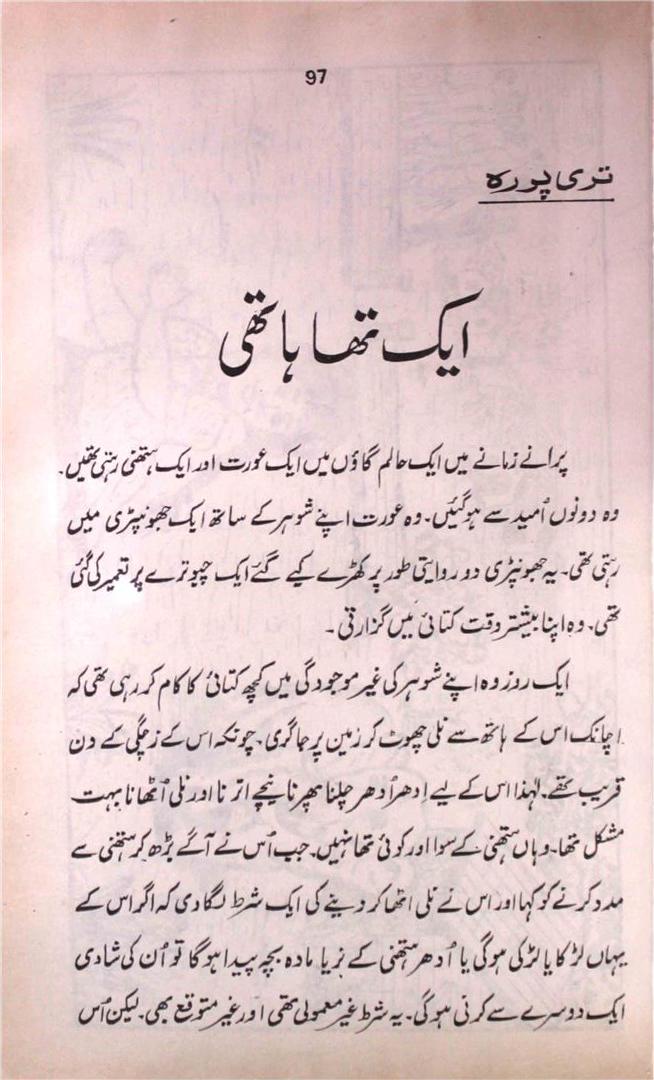 97
تری پورہ
ایک تھا ہاتھی
پرانے زمانے میں ایک حالم گاؤں میں ایک عورت اور ایک ہتھنی رہتی تھیں۔
وہ دونوں اُمید سے ہوگئیں۔ وہ عورت اپنے شوہر کے ساتھ ایک جھونپڑی میں
رہتی تھی۔ یہ جھونپڑی دو روایتی طور پر کھڑے کیے گئے ایک چبوترے پر تعمیر کی گئی
تھی۔ وہ اپنا بیشتر وقت کتائی میں گزارتی۔
ایک روز وہ اپنے شوہر کی غیر موجودگی میں کچھ کتائی کا کام کر رہی تھی کہ
اچانک اس کے ہاتھ سے نلی چھوٹ کر زمین پر جا گری۔ چونکہ اس کے زچگی کے دن
قریب تھے۔ لہٰذا اس کے لیے اِدھر اُدھر چلنا پھرنا نیچے اترنا اور نلی اُٹھانا بہت
مشکل تھا۔ وہاں ہتھنی کے سوا اور کوئی تھا نہیں۔ جب اُس نے آگے بڑھ کر ہتھنی سے
مدد کرنے کو کہا اور اس نے نلی اٹھا کر دینے کی ایک شرط لگا دی کہ اگر اس کے
یہاں لڑکا یا لڑکی ہوگی یا اُدھر ہتھنی کے نر یا مادہ بچہ پیدا ہوگا تو اُن کی شادی
ایک دوسرے سے کرنی ہوگی۔ یہ شرط غیر معمولی تھی اور غیر متوقع بھی۔ لیکن اُس